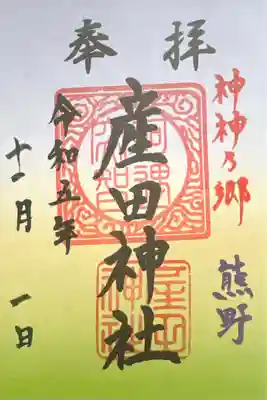 奉拝
神神乃郷
熊野
産田神社
令和五年
十一月一日